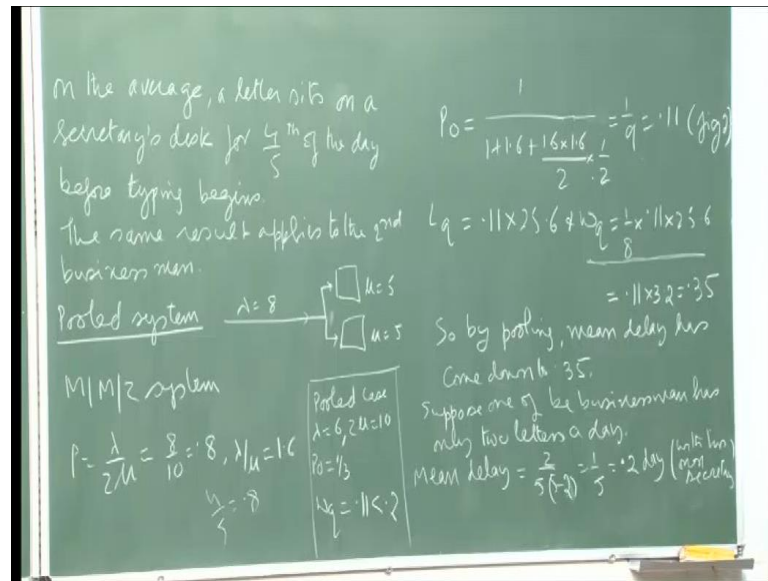 On the average, a letter sits on a
secretary's desk for 4/5 th of the day
before typing begins.
The same result applies to the 2nd
business man.
Pooled system λ=8 μ=5
μ=5
M|M|2 system
ρ = λ/2μ = 8/10 = .8, λ/μ = 1.6
4/5 = .8
Pooled case
λ=6, 2μ=10
P0=1/3
Wq = .11 < .2
P0 = 1/(1+1.6+(1.6×1.6)/2 × 1/.2) = 1/9 = .11
Lq = .11×25.6 & Wq = 1/8 × .11×25.6
= .11×3.2 = .35
So by pooling, mean delay has
come down to .35.
Suppose one of be businessman has
only two letters a day.
Mean delay = 2/5(5-2) = 1/5 = .2 day (with his own secretary)